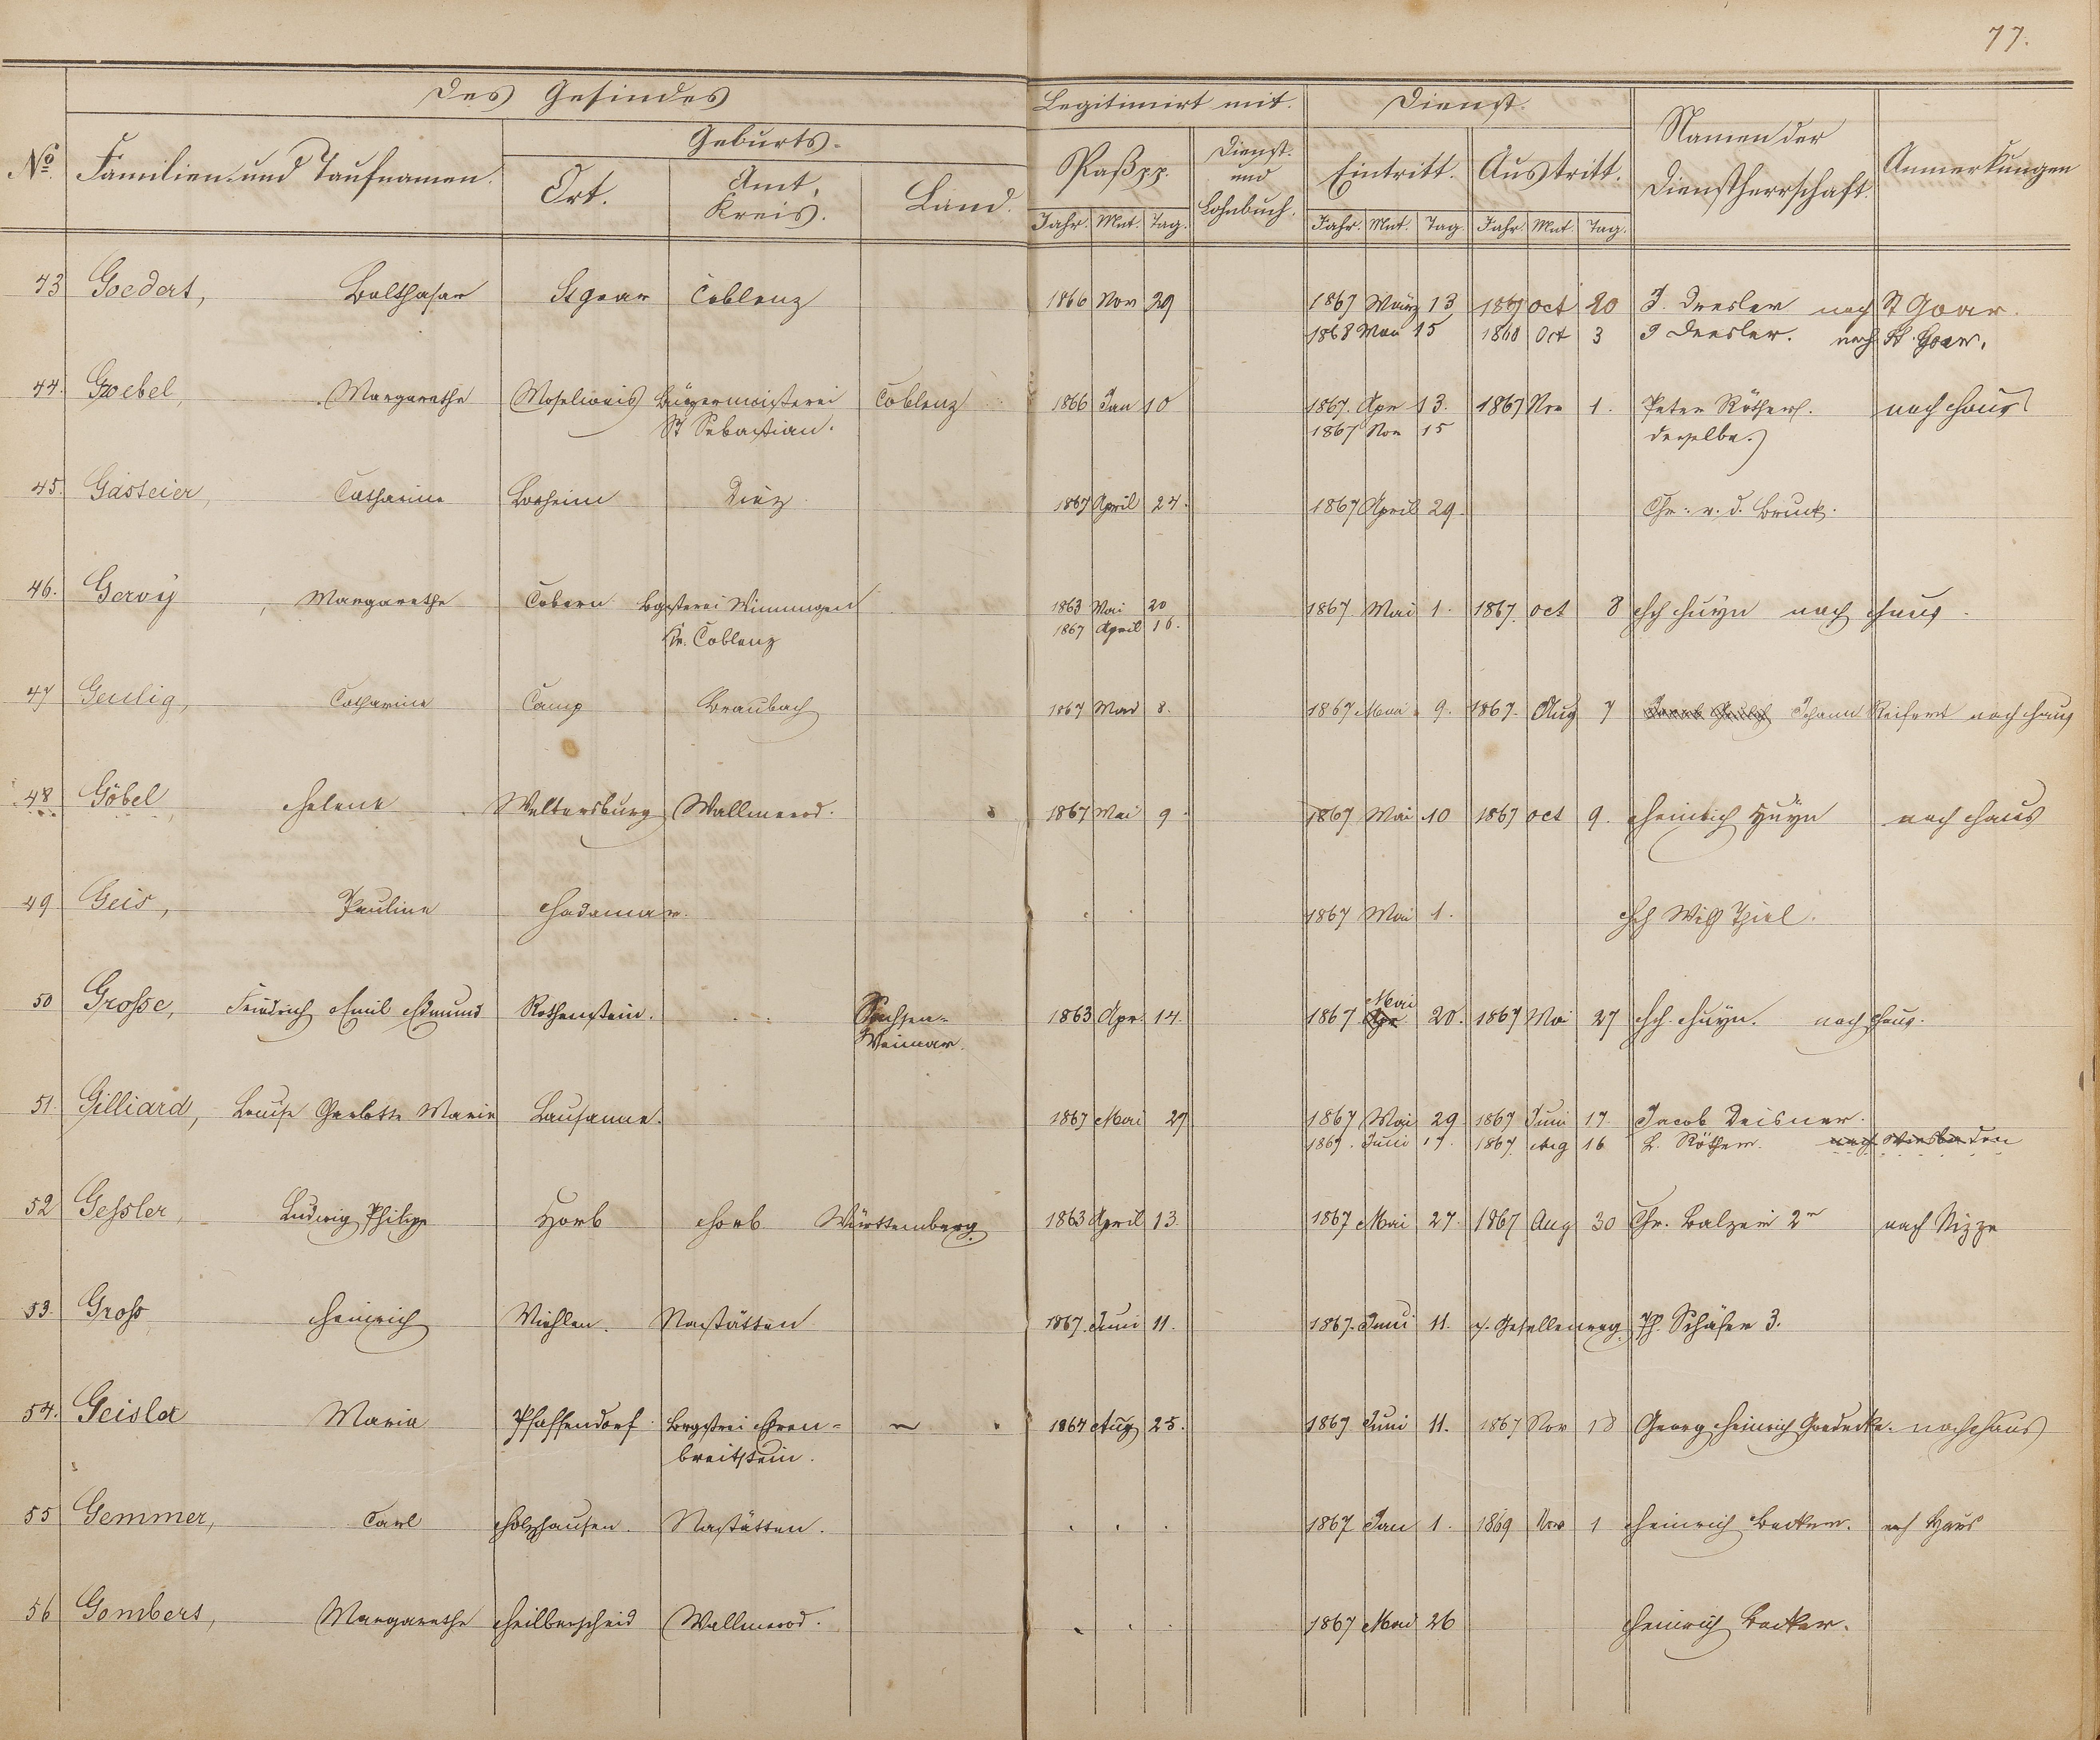 77.
Des Gesindes
Legitimirt mit.
Dienst.
No. Familien- und Taufnamen.
Geburts-
Ort. Amt, Kreis. Land.
Paß pp. Dienst- und Lohnbuch.
Eintritt. Austritt.
Namen der Dienstherrschaft.
Anmerkungen
Jahr. Mnt. Tag. Jahr. Mnt. Tag. Jahr. Mnt. Tag.
43 Goedert, Balthasar St goar Coblenz 1866 Nov 29 1867 März 13 1867 oct 20 J. Dresler nach St Goar.
1868 Mai 15 1868 Oct 3 J Dresler. nach St. Goar.
44. Goebel, Margarethe Moselweis Bürgermeisterei Coblenz 1866 Jan 10 1867. Apr 13. 1867 Nov 1. Peter Röther. nach Haus
St Sebastian. 1867 Nov 15 derselbe.
45. Gasteier, Catharine Lorheim Diez 1867 April 24. 1867 April 29. Chr. v. d. Bruck.
46. Gervy, Margarethe Cobern Bgrsterei Winningen 1863 Mai 20 1867 Mai 1. 1867. oct 8 Hch Huyn nach Haus.
Kr. Coblenz 1867 April 16.
47 Geulig, Catharine Camp Braubach 1867 Mai 8. 1867 Mai 9. 1867. Aug 7 Johann Reifert nach Haus
48 Göbel, Helene Weltersburg Wallmerod. 1867 Mai 9. 1867 Mai 10 1867 oct 9. Heinrich Huyn nach Haus
49 Geis, Pauline Hadamar. 1867 Mai 1. Hch Wilh Thiel.
50 Grosse, Friedrich Emil Edmund Rothenstein. Sachsen- 1863 Apr. 14. 1867 Mai Apr 20. 1867 Mai 27 Hch. Huyn. nach Haus.
Weimar.
51. Gilliard, Louise Charlotte Marie Lausanne. 1867 Mai 29 1867 Mai 29 1867 Juni 17 Jacob Deisner.
1867. Juni 17. 1867. Aug 16 L. Röther. nach Wiesbaden
52 Gessler, Ludwig Philipp Horb Horb Württemberg. 1863 April 13. 1867 Mai 27. 1867 Aug 30 Chr. Balzer 2r nach Nizza
53. Gross, Heinrich Miehlen. Nastätten 1867. Juni 11. 1867. Juni 11. Ph. Schäfer 3.
54. Geisler Maria Pfaffendorf Brgstrei Ehren- 1867 Aug 25. 1867 Juni 11. 1867 Nov 18 Georg Heinrich Goedecke. nach Haus
breitstein.
55 Gemmer, Carl Holzhausen. Nastätten. 1867 Jan 1. 1869 Nov 1 Heinrich Becker. nach Haus
56 Gombert, Margarethe Heilberscheid Wallmerod. 1867 Mai 26 Heinrich Becker.